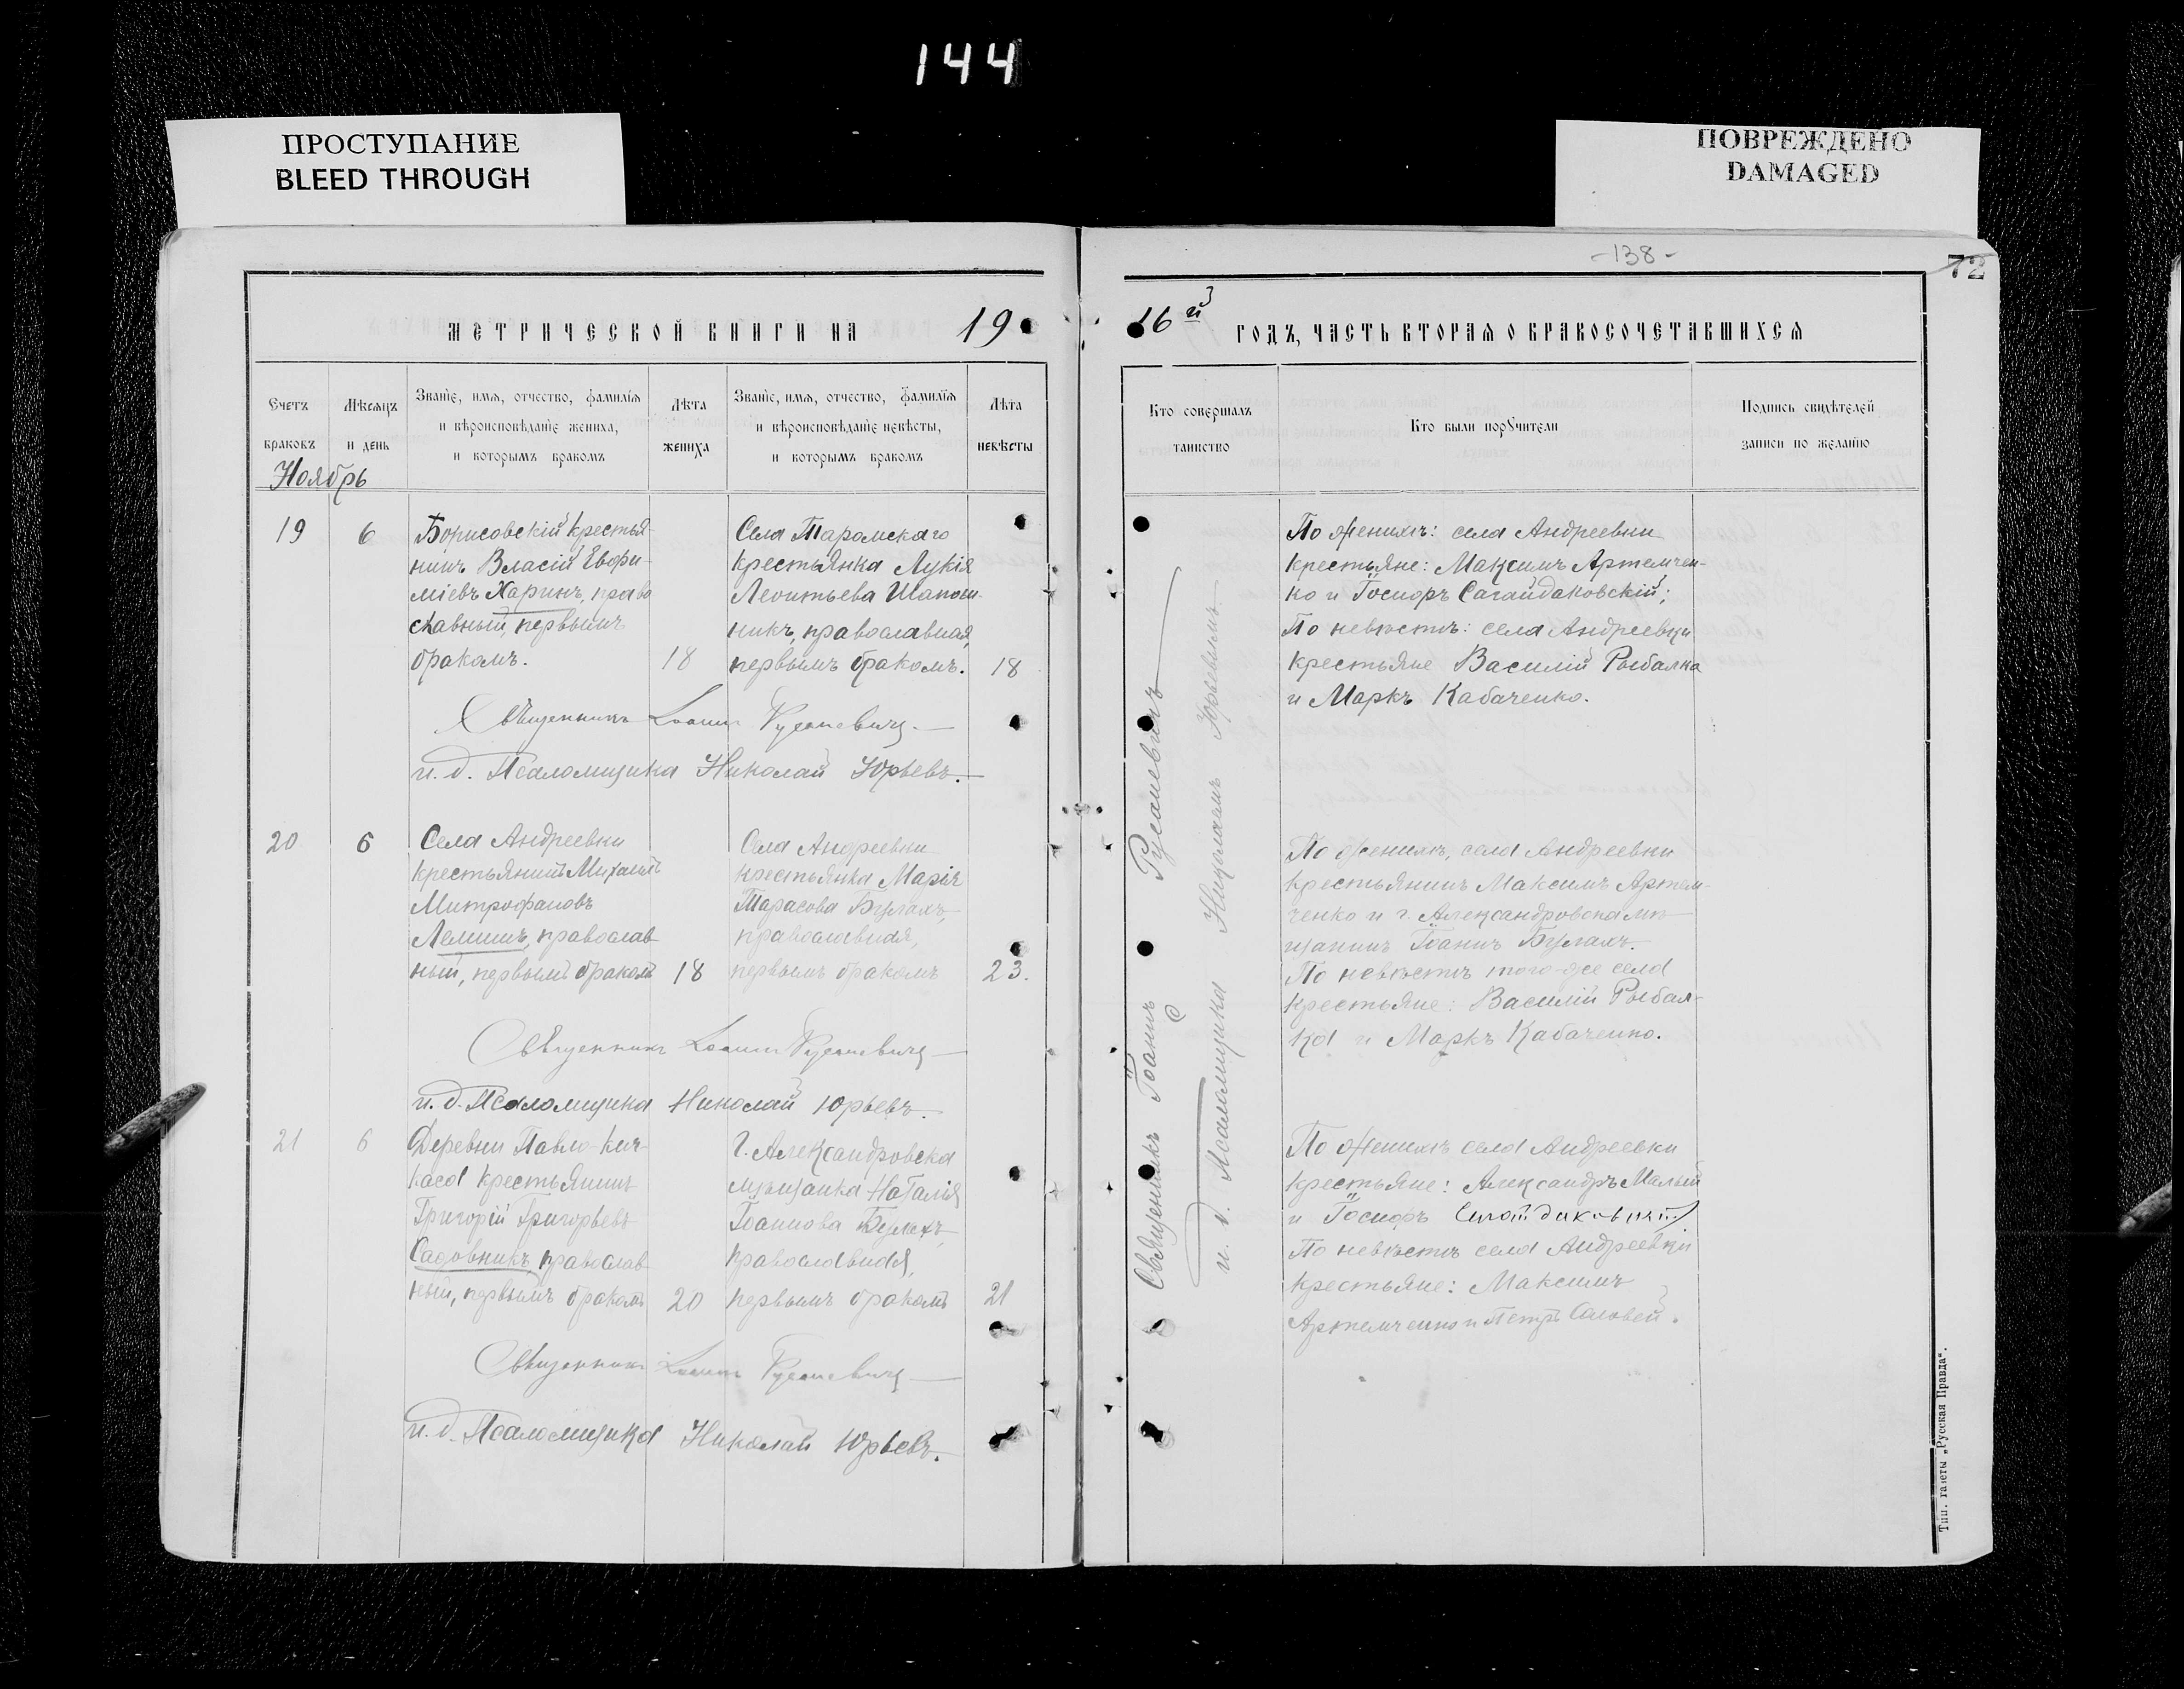 144
ПРОСТУПАНИЕ
BLEED THROUGH
ПОВРЕЖДЕНО
DAMAGED
-138-
72
МЕТРИЧЕСКОЙ КНИГИ НА 19
16й ГОДЪ, ЧАСТЬ ВТОРАЯ О БРАКОСОЧЕТАВШИХСЯ
Счетъ
браковъ
Мѣсяцъ
и день
Званіе, имя, отчество, фамилія
и вѣроисповѣданіе жениха,
и которымъ бракомъ
Лѣта
жениха
Званіе, имя, отчество, фамилія
и вѣроисповѣданіе невѣсты,
и которымъ бракомъ
Лѣта
невѣсты
Кто совершалъ
таинство
Кто были поручители
Подпись свидѣтелей
записи по желанію
Ноябрь
19
6
Борисовскій крестья-
нинъ Власій Евфи-
міевъ Харинъ, право
славный, первымъ
бракомъ.
18
Села Таромскаго
крестьянка Лукія
Леонтьева Шапош-
никъ, православная,
первымъ бракомъ.
18
По женихѣ: села Андреевки
крестьяне: Максимъ Артемчен-
ко и Іосифъ Сагайдаковскій;
По невѣстѣ: села Андреевки
крестьяне Василій Рыбалка
и Маркъ Кабаченко.
Священникъ Іоаннъ Русаневичъ
и. д. Псаломщика Николай Юрьевъ.
20
6
Села Андреевки
крестьянинъ Михаилъ
Митрофановъ
Лемишъ, православ
ный, первымъ бракомъ
18
Села Андреевки
крестьянка Марія
Тарасова Булахъ,
православная,
первымъ бракомъ
23.
По женихѣ, села Андреевки
крестьянинъ Максимъ Артем-
ченко и г. Александровска мѣ-
щанинъ Іоаннъ Булахъ.
По невѣстѣ того-же села
крестьяне: Василій Рыбал-
ка и Маркъ Кабаченко.
Священникъ Іоаннъ Русаневичъ
и. д. Псаломщика Николай Юрьевъ.
21
6
Деревни Павло-Кич-
каса крестьянинъ
Григорій Григорьевъ
Садовникъ, православ
ный, первымъ бракомъ
20
Г. Александровска
мѣщанка Наталія
Іоаннова Булахъ,
православная,
первымъ бракомъ
21
По женихѣ села Андреевки
крестьяне: Александръ Малый
и Іосифъ
По невѣстѣ села Андреевки
крестьяне: Максимъ
Артемченко и Петръ Соловей.
Священникъ Іоаннъ Русаневичъ
и. д. Псаломщика Николай Юрьевъ.
Священникъ Іоаннъ Русаневичъ
и. д. Псаломщика Николай Юрьевымъ
Тип. газеты „Русская Правда“.